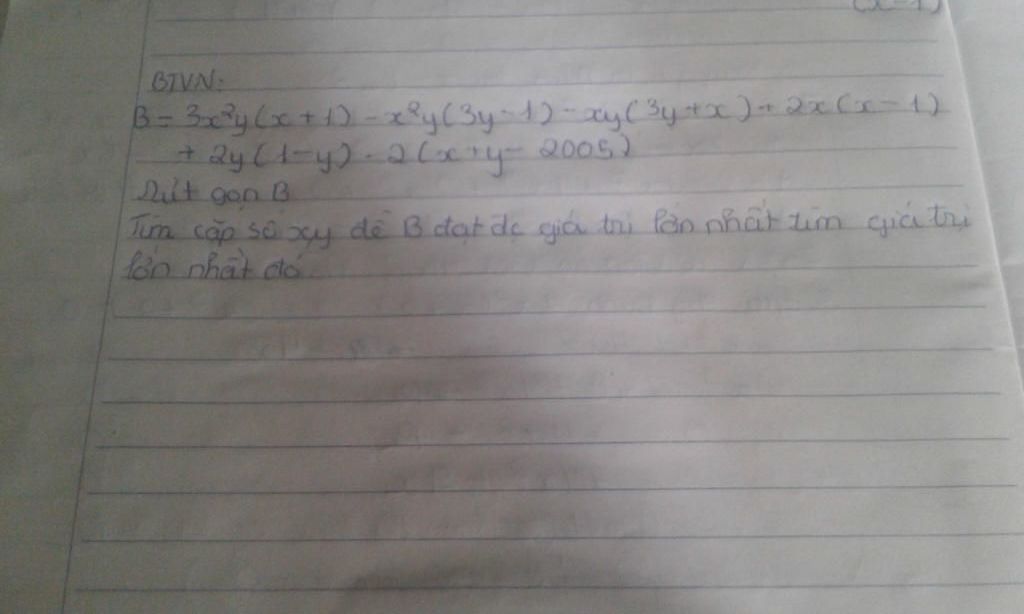 (x-1)
BTVN:
B = 3x²y(x+1) - x²y(3y-1) - xy(3y+x) + 2x(x-1)
+ 2y(1-y) - 2(x+y-2005)
Rút gọn B
Tìm cặp số xy để B đạt đc giá trị lớn nhất tìm giá trị
lớn nhất đó